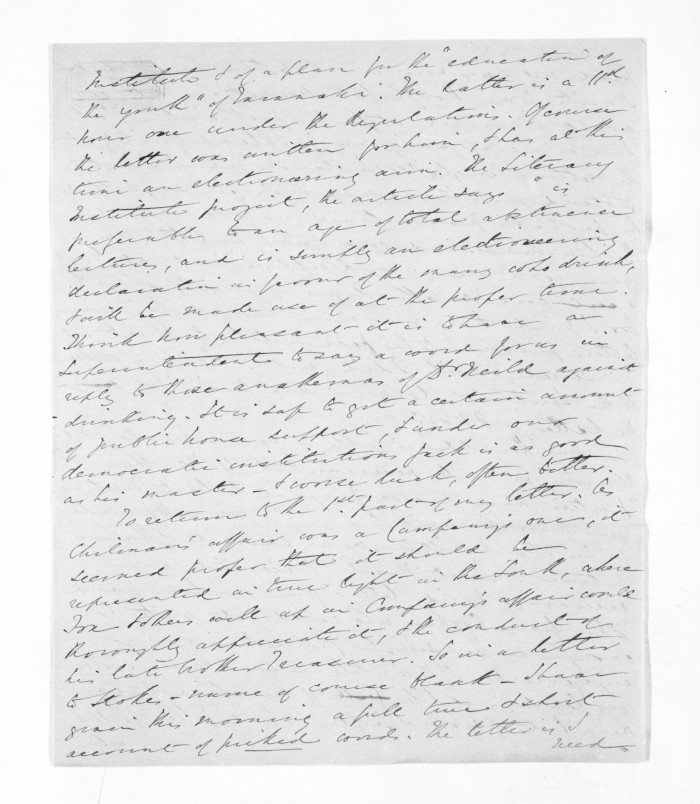 Institute & of a plan for the "education of
the youth" of Taranaki. The latter is a 11th
hour one under the Regulations. Of course
the letter was written for him, & has at this
time an electioneering aim. The Literary
Institute project, the article says "is
preferable to an age of total abstinence
lectures, and is simply an electioneering
declaration in favour of the many who drink,
& will be made use of at the proper time.
Think how pleasant it is to have a
Superintendent to say a word for us in
reply to those anathemas of Dr. Neild against
drinking. It is safe to get a certain amount
of public house support, & under our
democratic institutions Jack is as good
as his master - & worse luck, often better.
To return to the 1st. part of my letter. As
Chilman's affair was a Company's one, it
seemed proper that it should be
represented in true light in the South, where
Fox & others well up in Company's affairs could
thoroughly appreciate it, & the conduct of
his late brother Treasurer. So in a letter
to Stokes - name of course blank - I have
given this morning a full true & short
account of picked words. The letter is I
need